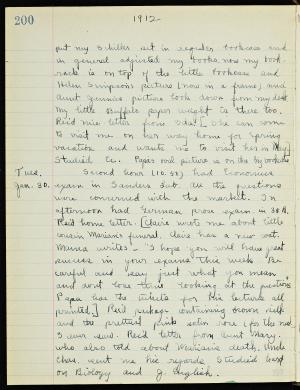 200
1912
put my Schiller set in regular bookcase and
in general adjusted my books. now my book-
rack is on top of the little bookcase and
Helen Simpson's picture (now in a frame) and
aunt Jennie's picture look down from my desk
My little Buffalo paper weight is there too.
Rec'd nice letter from Ida! [She can come
to visit me on her way home for spring
vacation and wants me to visit her in May]
Studied Ec. Papa's oval picture is on the big bookcase
Tues.
Jan. 30.
Second hour (10.30) had Economics
exam in Sanders Lab. All the questions
were concerned with the market. In
afternoon had German prose exam in
Rec'd home letter. [Claire wrote me about little
cousin Marian's funeral. Claire has a rose out.
Mama writes - "I hope you will have great
success in your exams this week. Be
careful and say just what you mean
and dont lose time looking at the questions"
Papa has the tickets for his lecture all
printed.] Rec'd package containing brown
and the prettiest pink satin rose (for the hair)
I ever saw. Rec'd letter from aunt Mary.
who also told about Marian's death. Uncle
Chas. sent me his regards. Studied hard
on Biology and J. English.